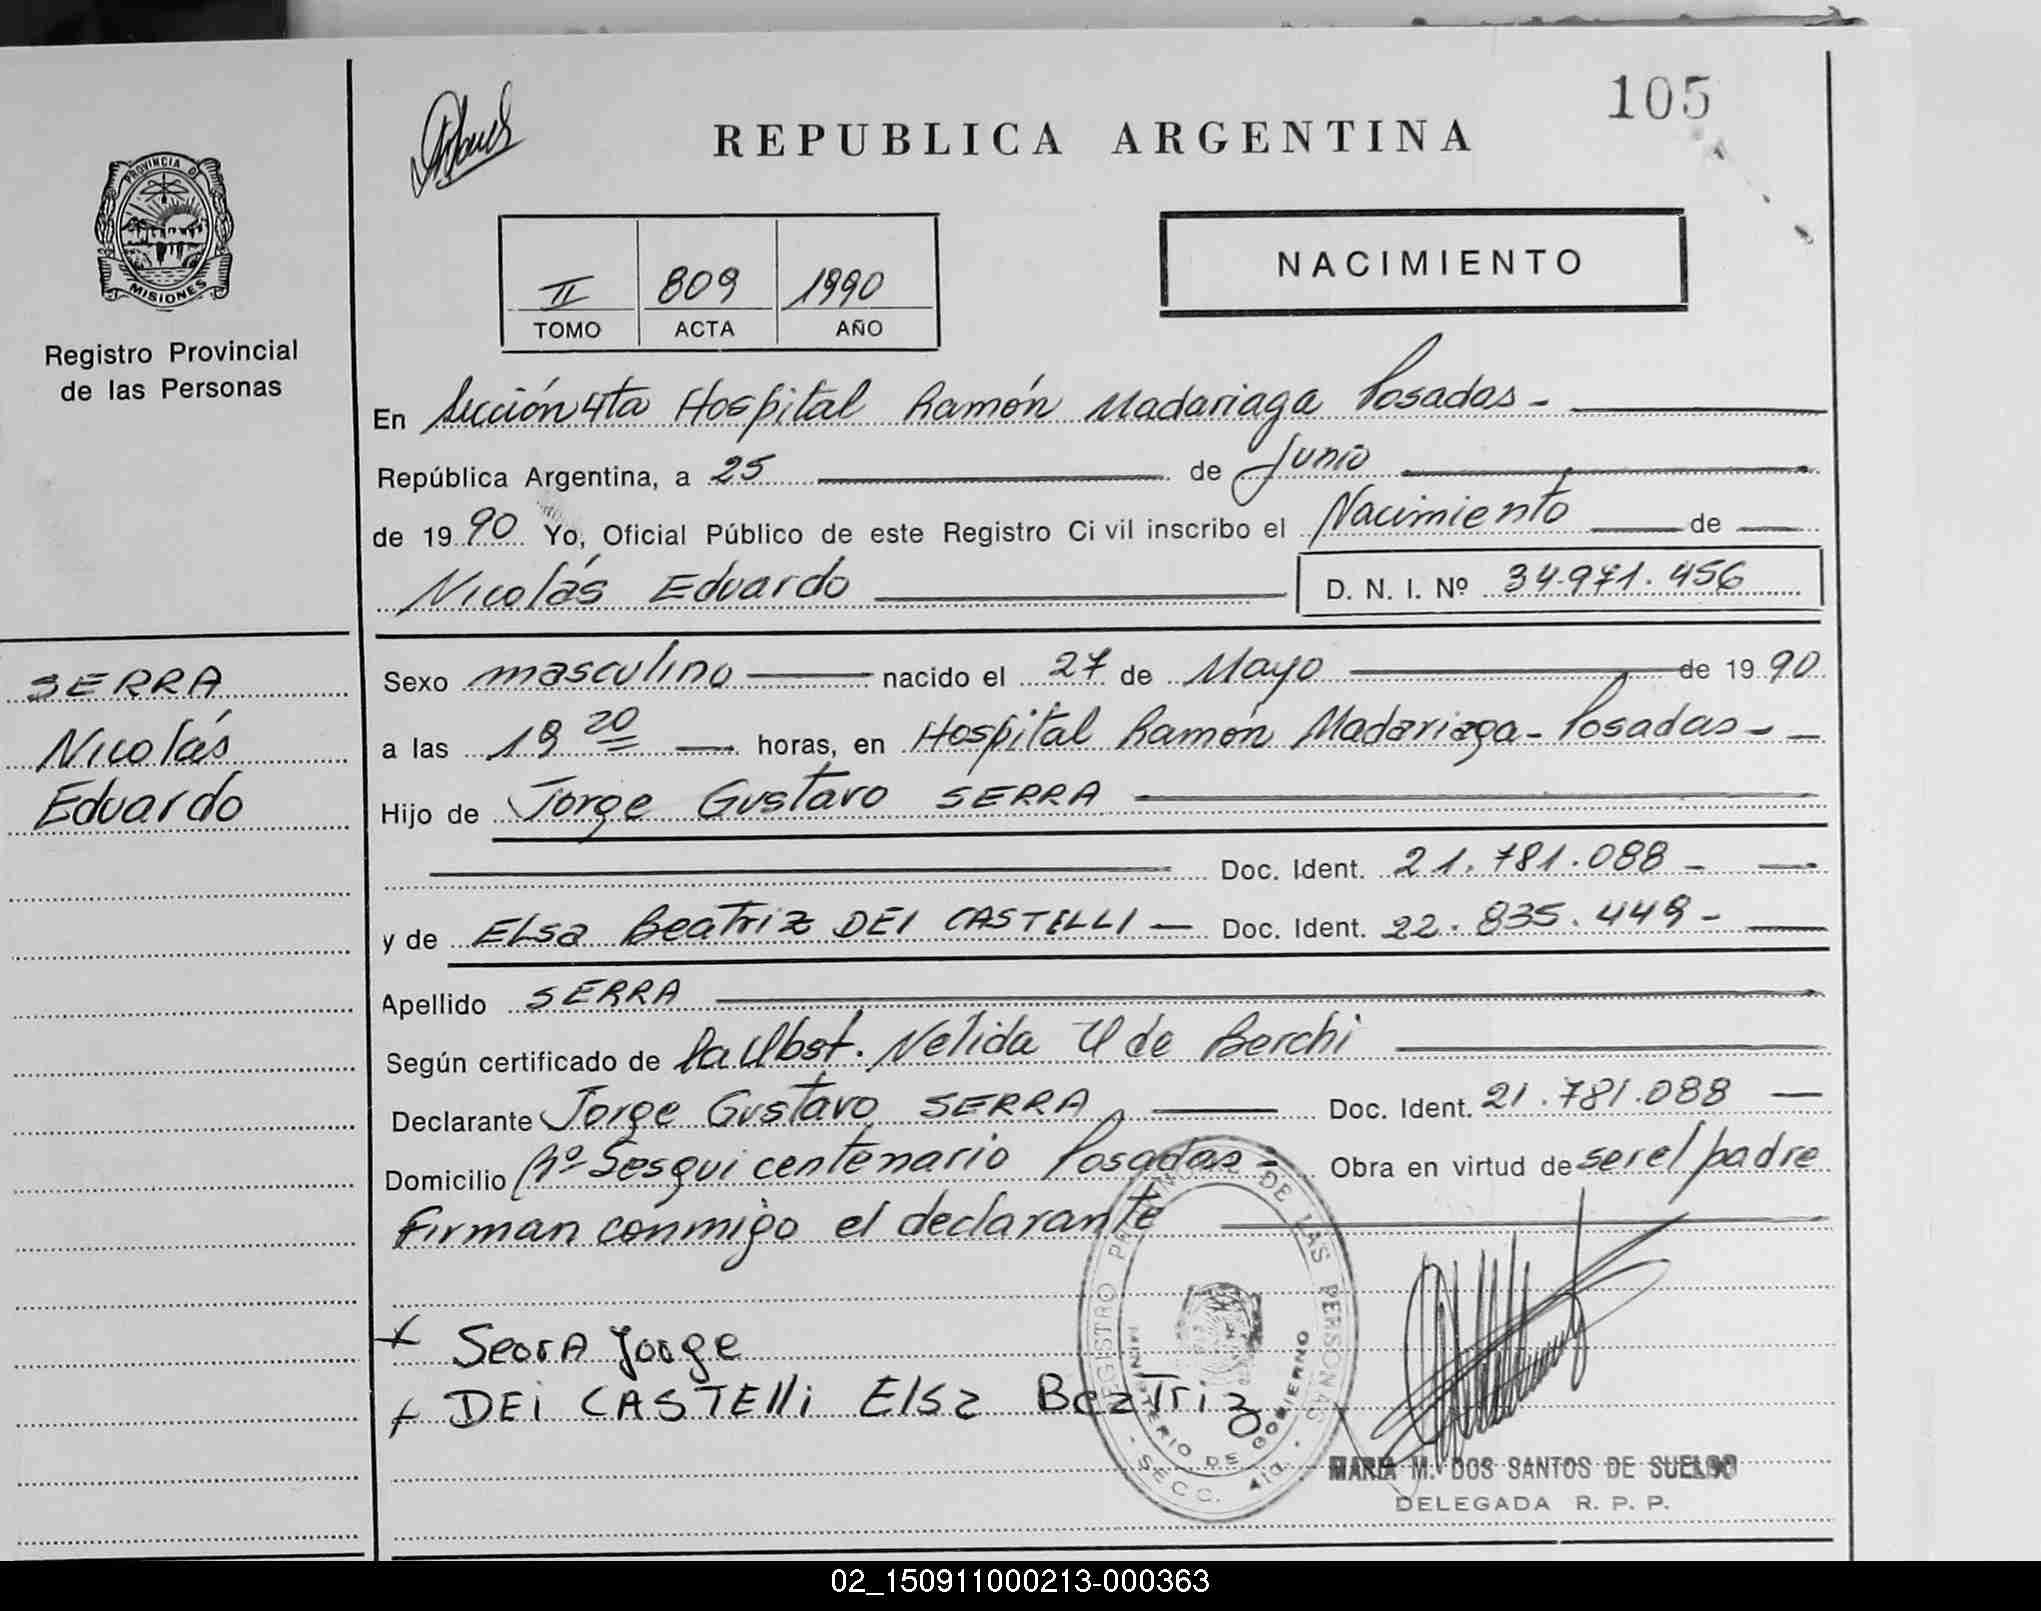 105
REPUBLICA ARGENTINA
PROVINCIA DE
MISIONES
Registro Provincial
de las Personas
II 809 1990
TOMO ACTA AÑO
NACIMIENTO
En Sección 4ta Hospital Ramón Madariaga Posadas -
República Argentina, a 25 de Junio
de 1990 Yo, Oficial Público de este Registro Civil inscribo el Nacimiento de
Nicolás Eduardo D. N. I. Nº 34.971.456
SERRA
Nicolás
Eduardo
Sexo masculino nacido el 27 de Mayo de 1990
a las 19 20 horas, en Hospital Ramón Madariaga - Posadas -
Hijo de Jorge Gustavo SERRA
Doc. Ident. 21.781.088 -
y de Elsa Beatriz DEI CASTELLI Doc. Ident. 22.835.449 -
Apellido SERRA
Según certificado de la Obst. Nelida de Berchi
Declarante Jorge Gustavo SERRA Doc. Ident. 21.781.088
Domicilio Bº Sesquicentenario Posadas - Obra en virtud de ser el padre
Firman conmigo el declarante
Serra Jorge
DEi CASTElli Elsa BeaTriz
REGISTRO PROVINCIAL DE LAS PERSONAS
MINISTERIO DE GOBIERNO
SECC. 4ta.
MARIA M. DOS SANTOS DE SUELDO
DELEGADA R. P. P.
02_150911000213-000363